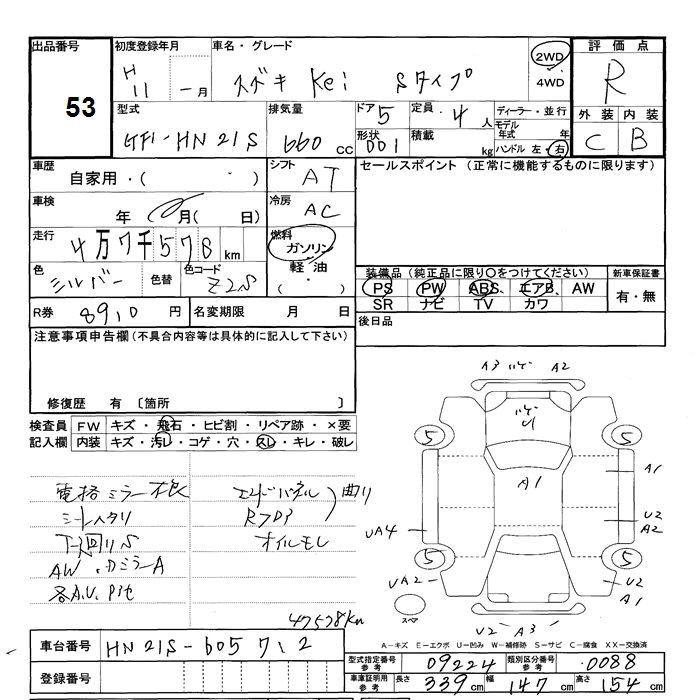 出品番号 53
初度登録年月 H 11 年 - 月
車名・グレード スズキ Kei Sタイプ
2WD
4WD
評価点 R
外装 C 内装 B
型式 GF-HN21S
排気量 660 cc
ドア 5 形状 001
定員 4 人 積載 kg
ディーラー・並行
モデル年式 年
ハンドル 左・右
車歴 自家用・( ・ )
車検 年 月( 日)
走行 4万7千578 km
色 シルバー 色替 色コード Z2S
シフト AT
冷房 AC
燃料 ガソリン
軽油
( ・ )
セールスポイント (正常に機能するものに限ります)
装備品(純正品に限り○をつけてください)
PS PW ABS エアB AW
SR ナビ TV カワ
新車保証書 有・無
R券 8910 円 名変期限 月 日
後日品
注意事項申告欄(不具合内容等は具体的に記入して下さい)
修復歴 有 〔箇所 〕
検査員記入欄 FW キズ・飛石・ヒビ割・リペア跡・×要
内装 キズ・汚レ・コゲ・穴・スレ・キレ・破レ
電格ミラー不良
シートヘタリ
下回りS
AW、ドミラーA
各A.U.Pit
エンドパネル
曲り
オイルモレ
47578Km
A3 A2
5 5
A1
A1
U2
A2
UA4
5 5
UA2
U2
A1
スペア
U2 A3
A－キズ E－エクボ U－凹み W－補修跡 S－サビ C－腐食 XX－交換済
車台番号 HN21S-605712
登録番号
型式指定番号 参考 09224 類別区分番号 参考 0088
車庫証明用 参考 長さ 339 cm 幅 147 cm 高さ 154 cm